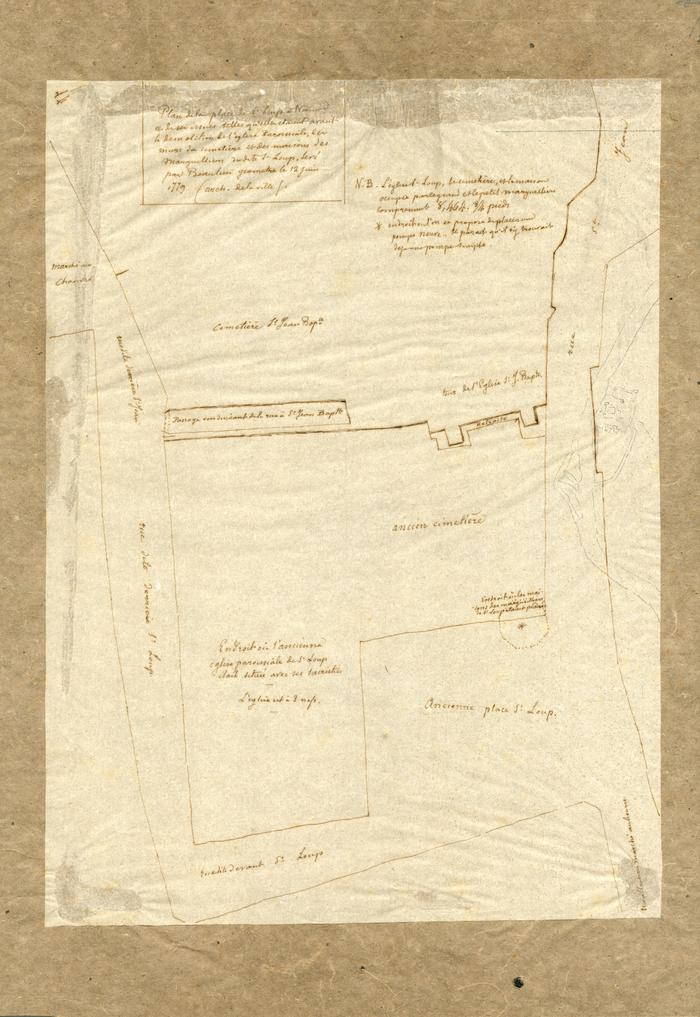 Plan de la place de St Loup à Namur
et de ses issues telles qu'elles étaient avant
la démolition de l'église Paroissiale, des
murs du cimetière et des maisons des
Marguilliers dudit St Loup, levé
par Beaulieu géomètre le 12 juin
1779 (arch. de la ville).
N.B. L'église St Loup, le cimetière, et la maison
occupée par le grand et le petit marguilliers
comprennent 8,464. 3/4 pieds
* endroit où l'on se propose de placer une
pompe neuve
St Jean
rue
marché au
Chanvre
cimetière St Jean Bapte
rue dite derrière St Jean
Passage conduisant de la rue à St Jean Bapte
tour de l'Eglise St J. Bapte
Retraite
ancien cimetière
rue dite derrière St Loup
Endroit où les mai-
sons des marguilliers
de St Loup étaient placées
*
Endroit où l'ancienne
église paroissiale de St Loup
était située avec ses sacristies
L'église est à 3 nefs.
Ancienne place St Loup.
rue dite devant St Loup